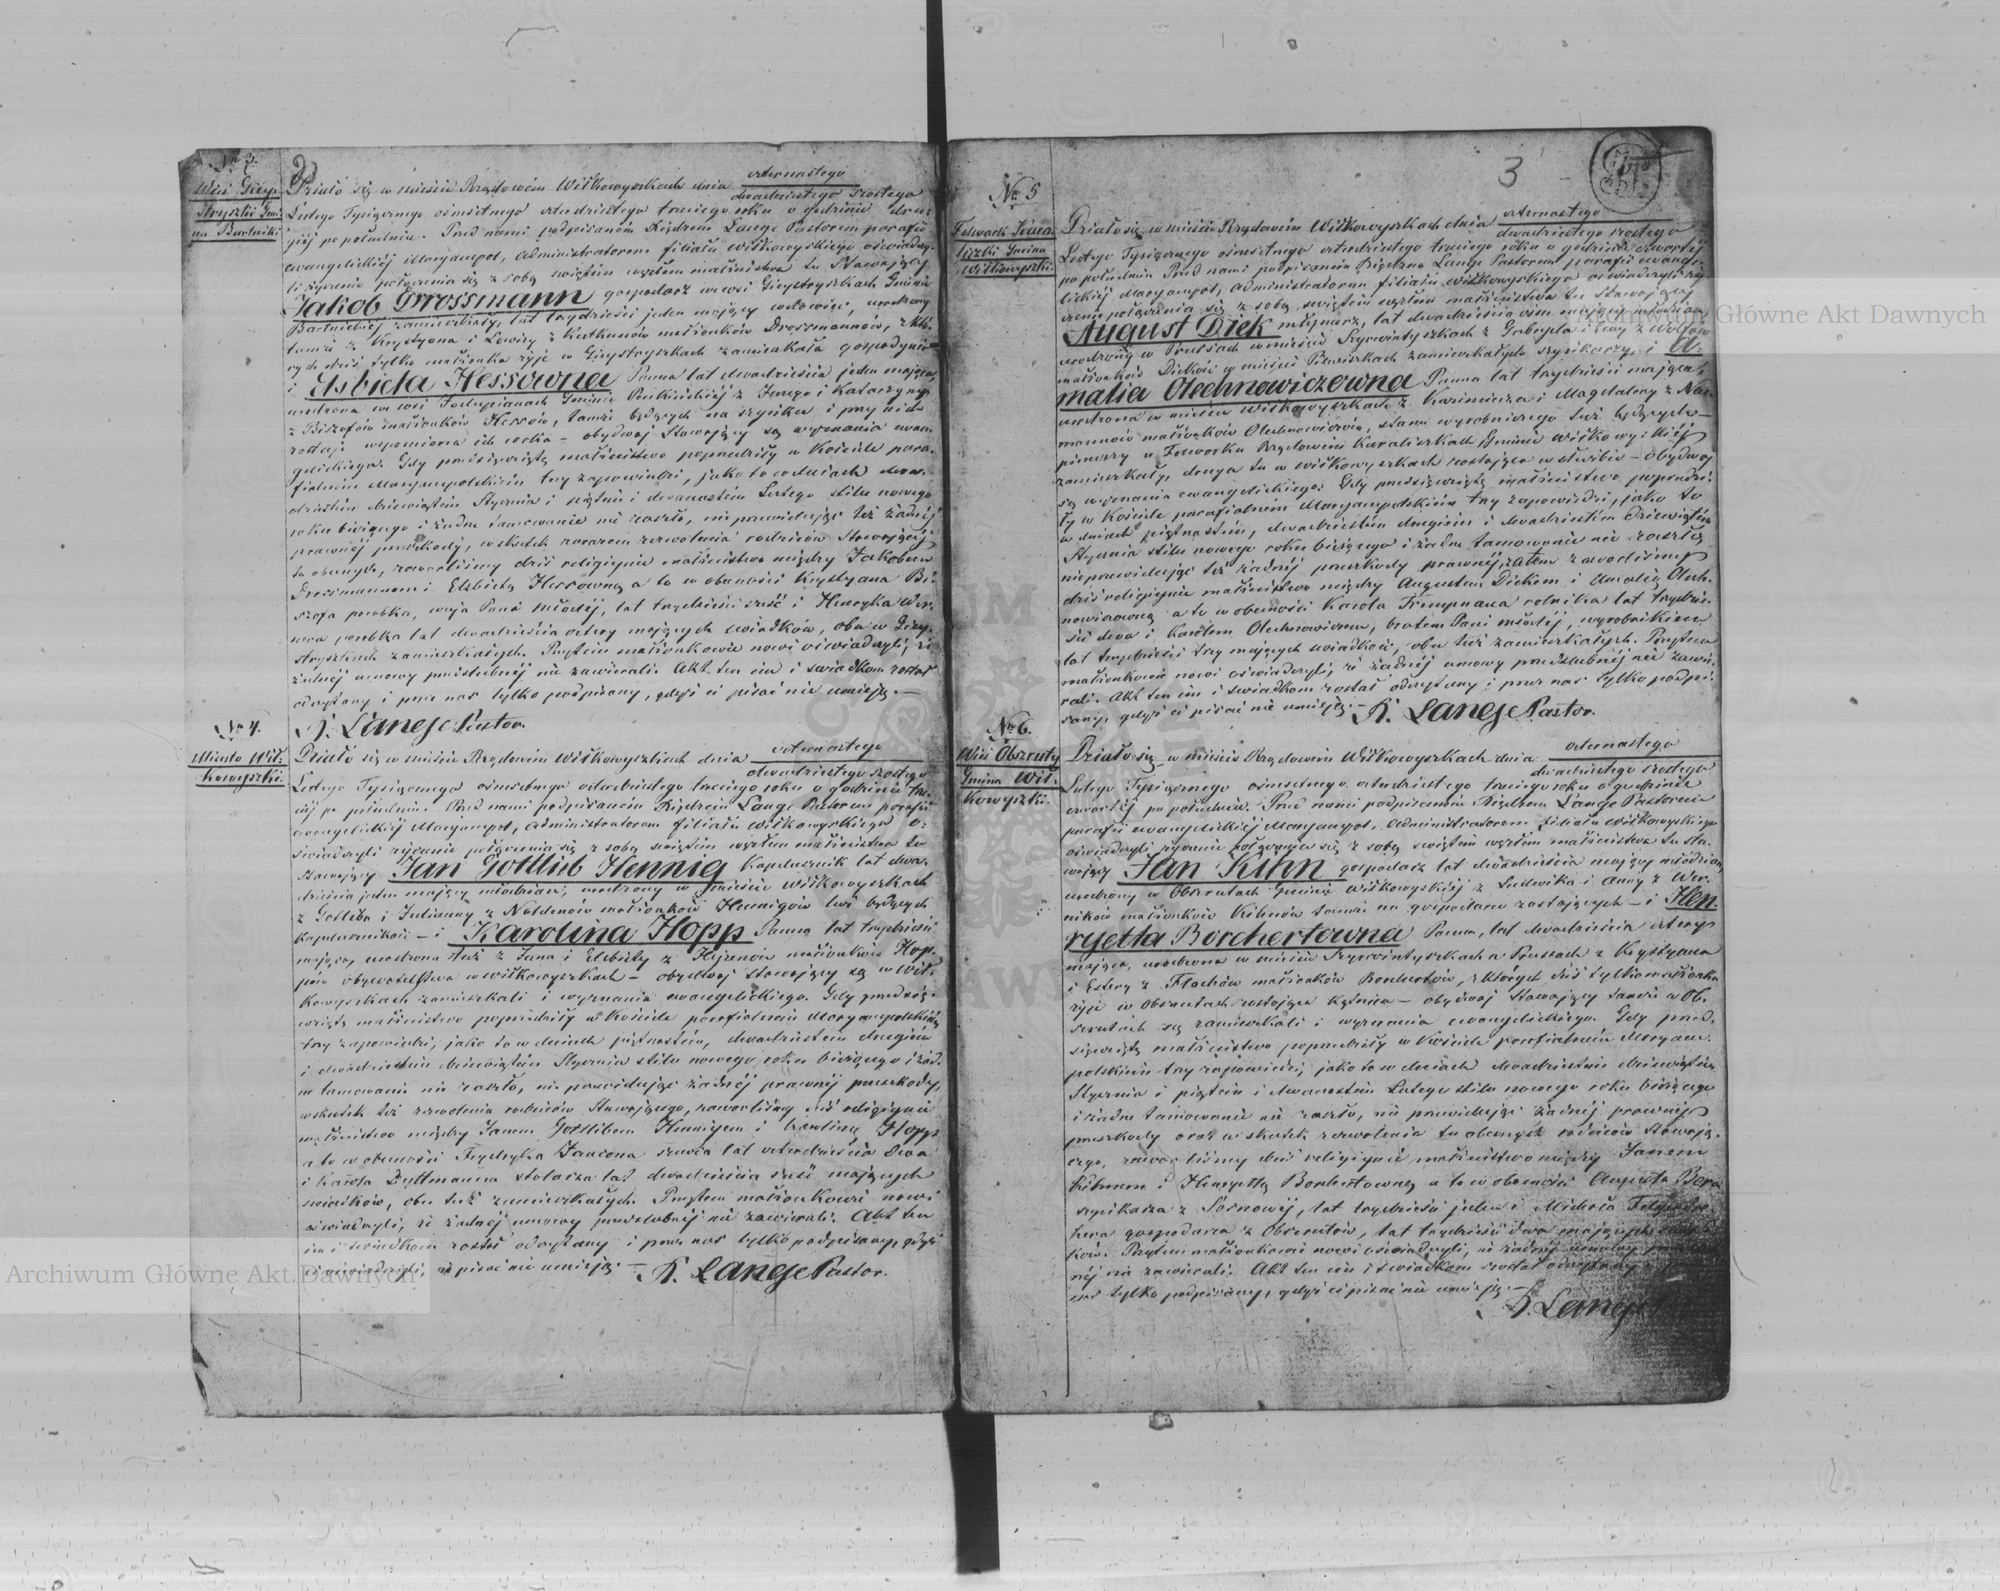 No 3.
Wieś Giży-
stryszki Gmi-
na Bartniki
Działo się w mieście Rządowém Wiłkowyszkach dnia czternastego
dwudziestego szostego
Lutego Tysiącznego osmsetnego czterdziestego trzeciego roku o godzinie dru-
giéj po południu. Przed nami podpisaném Księdzem Lange Pastorem parafii
ewangelickiéj Maryampol, administratorem filiału Wiłkowyskiego oświadczy-
li życzenie połączenia się z sobą świętem węzłem małżeństwa tu Stawający
Jakob Drossmann gospodarz we wsi Giżystryszkach Gminie
Bartnickiéj zamieszkały, lat trzydzieści jeden mający wdowiec, urodzony
tamże z Krystyana i Lowizy z Kutkunów małżonków Drossmannów, z któ-
rych dziś tylko matka żyje w Giżystryszkach zamieszkała gospodyni-
i Elsbieta Hessówna Panna lat dwadzieścia jeden mająca,
urodzona we wsi Gminie z Jerzego i Katarzyny
z Biszofów małżonków Hessów, tamże będących na szynku i przy nich
wspomniona ich córka – obydwaj Stawający są wyznania ewan-
gelickiego. Gdy przedsięwziętę małżeństwo poprzedziły w Kościele para-
fialném Maryampolskiém trzy zapowiedzi, jako to w dniach dwu-
dziestém dziewiątém Stycznia i piątém i dwunastém Lutego stilu nowego
roku bieżącego i żadne tamowanie nie zaszło, nie przewidując też żadnéj
prawnéj przeszkody, w skutek zarazem zezwolenia rodziców Stawającéj
tu obecnych, zawarliśmy dziś religijnie małżeństwo między Jakobem
Drossmannem i Elsbietą Hessówną a to w obecności Krystyana Bi-
szofa parobka, wuja Panny Młodéj, lat trzydzieści sześć i Henryka Wer-
nera parobka lat dwadzieścia cztery mających świadków, obu w Giży-
stryszkach zamieszkałych. Przytem małżonkowie nowi oświadczyli, iż
żadnéj umowy przedślubnéj nie zawierali. Akt ten im i świadkom został
odczytany i przez nas tylko podpisany, gdyż ci pisać nie umieją. —
K. Lange Pastor.
No 4.
Miasto Wił-
kowyszki.
Działo się w mieście Rządowém Wiłkowyszkach dnia czternastego
dwudziestego szostego
Lutego Tysiącznego osmsetnego czterdziestego trzeciego roku o godzinie trze-
ciéj po południu. Przed nami podpisaném Księdzem Lange Pastorem parafii
ewangelickiéj Maryampol, administratorem filiału Wiłkowyskiego o-
świadczyli życzenie połączenia się z sobą świętem węzłem małżeństwa tu
Stawający Jan Gottlieb Hennig Kapelusznik lat dwa-
dzieścia jeden mający młodzian, urodzony w mieście Wiłkowyszkach
z Gotliba i Julianny z Noldenów małżonków Hennigów tuż będących
kapeluszników – i Karolina Hopp Panna lat trzydzieści
mająca, urodzona tuż z Jana i Elsbiety z małżonków Hop-
pów obywatelstwa w Wiłkowyszkach – obydwaj stawający są w Wił-
kowyszkach zamieszkali i wyznania ewangelickiego. Gdy przedsię-
wziętę małżeństwo poprzedziły w Kościele parafialném Maryampolskiém
trzy zapowiedzi, jako to w dniach piętnastém, dwudziestém drugiém
i dwudziestém dziewiątém Stycznia stilu nowego roku bieżącego i żad-
ne tamowanie nie zaszło, nie przewidując żadnéj prawnéj przeszkody,
w skutek też zezwolenia rodziców Stawającego, zawarliśmy dziś religijnie
małżeństwo między Janem Gottliebem Hennigem i Karoliną Hopp
a to w obecności Frydryka szewca lat czterdzieścia dwa
i Karola Dyttmanna stolarza lat dwadzieścia sześć mających
świadków, obu tuż zamieszkałych. Przytem małżonkowie nowi
oświadczyli, iż żadnéj umowy przedślubnéj nie zawierali. Akt ten
im i świadkom został odczytany i przez nas tylko podpisany, gdyż
ci oświadczyli, iż pisać nie umieją. — K. Lange Pastor.
3
No 5
Folwark Kara-
liszki Gmina
Wiłkowyszki.
Działo się w mieście Rządowém Wiłkowyszkach dnia czternastego
dwudziestego szostego
Lutego Tysiącznego osmsetnego czterdziestego trzeciego roku o godzinie czwartéj
po południu. Przed nami podpisaném Księdzem Lange Pastorem parafii ewange-
lickiéj Maryampol, administratorem filiału Wiłkowyskiego oświadczyli ży-
czenie połączenia się z sobą świętem węzłem małżeństwa tu Stawający
August Diek młynarz, lat dwadzieścia osm mający młodzian,
urodzony w Prusach w mieście Szyrwintyszkach z Gabryela i Ewy z Wolfów
małżonków Dieków w mieście Pilwiszkach zamieszkałych szynkarzy, i A-
malia Olechnowiczowna Panna lat trzydzieści mająca,
urodzona w mieście Wiłkowyszkach z Kazimierza i Magdaleny z Nor-
mannów małżonków Olechnowiczów, stanu wyrobniczego tuż będących –
pierwszy w Folwarku Rządowém Karaliszkach Gminie Wiłkowyskiéj
zamieszkały, druga tu w Wiłkowyszkach zostająca w służbie – obydwaj
są wyznania ewangelickiego. Gdy przedsięwziętę małżeństwo poprzedzi-
ły w Kościele parafialném Maryampolskiém trzy zapowiedzi, jako to
w dniach piętnastém, dwudziestém drugiém i dwudziestém dziewiątém
Stycznia stilu nowego roku bieżącego i żadne tamowanie nie zaszło,
nieprzewidując też żadnéj przeszkody prawnéj, zatem zawarliśmy
dziś religijnie małżeństwo między Augustem Diekem i Amalią Olech-
nowiczowną a to w obecności Karola Trempnaua rolnika lat trzydzie-
ści dwa i Karolem Olechnowiczem, bratem Pani młodéj, wyrobnikiem
lat trzydzieści trzy mających świadków, obu tuż zamieszkałych. Przytem
małżonkowie nowi oświadczyli, iż żadnéj umowy przedślubnéj nie zawie-
rali. Akt ten im i świadkom został odczytany i przez nas tylko podpi-
sany, gdyż ci pisać nie umieją. — K. Lange Pastor.
No 6.
Wieś Obszruty
Gmina Wił-
kowyszki.
Działo się w mieście Rządowém Wiłkowyszkach dnia czternastego
dwudziestego szostego
Lutego Tysiącznego osmsetnego czterdziestego trzeciego roku o godzinie
czwartéj po południu. Przed nami podpisaném Księdzem Lange Pastorem
parafii ewangelickiéj Maryampol, administratorem filiału Wiłkowyskiego
oświadczyli życzenie połączenia się z sobą świętem węzłem małżeństwa tu Sta-
wający Jan Kihn gospodarz lat dwadzieścia mający młodzian,
urodzony w Obszrutach Gminie Wiłkowyskiéj z Ludwika i Anny z Wer-
ników małżonków Kihnów tamże na gospodarce zostających – i Hen-
ryetta Borchertowna Panna, lat dwadzieścia cztery
mająca, urodzona w mieście Szyrwintyszkach w Prusach z Krystyana
i Estery z Flachów małżonków Borchertów, z których dziś tylko matka
żyje w Obszrutach zostająca – obydwaj Stawający tamże w Ob-
szrutach są zamieszkali i wyznania ewangelickiego. Gdy przed-
sięwziętę małżeństwo poprzedziły w Kościele parafialném Maryam-
polskiém trzy zapowiedzi, jako to w dniach dwudziestém dziewiątém
Stycznia i piątém i dwunastém Lutego stilu nowego roku bieżącego
i żadne tamowanie nie zaszło, nie przewidując żadnéj prawnéj
przeszkody oraz w skutek zezwolenia tu obecnych rodziców Stawają-
cego, zawarliśmy dziś religijnie małżeństwo między Janem
Kihnem i Henryettą Borchertowną a to w obecności Augusta
szynkarza z Sosnowéj, lat trzydzieści jeden i Michała
gospodarza z Obszrutów, lat trzydzieści dwa mających świad-
ków. Przytem małżonkowie nowi oświadczyli, iż żadnéj umowy
néj nie zawierali. Akt ten im i świadkom został odczytany
nas tylko podpisany, gdyż ci pisać nie umieją. —
K. Lange
Archiwum Główne Akt Dawnych
Główne Akt Dawnych